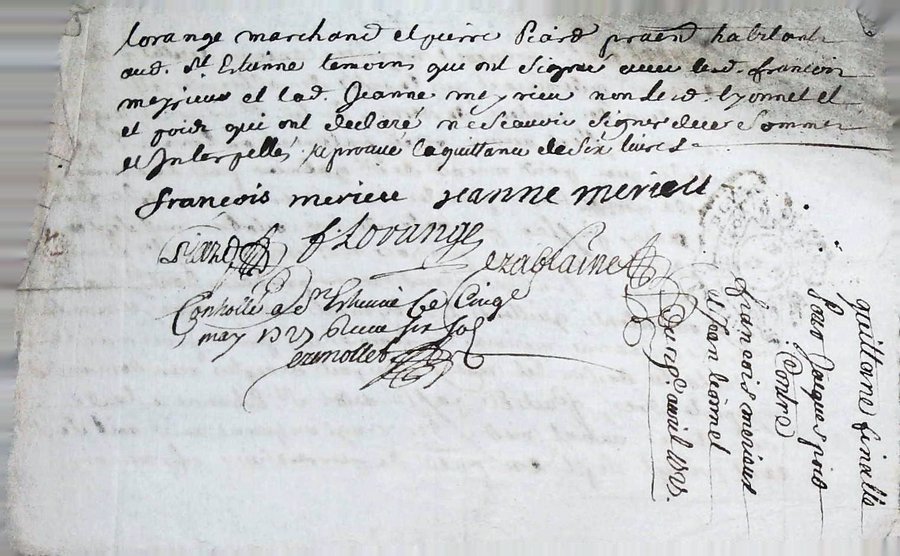 lorange marchand et pierre Picard puisné habitants
aud. St. Etienne temoins qui ont signé avec led. françois
meyrieux et lad. Jeanne meyrieu non led. lyonnet et
et poidz qui ont declaré ne scavoir signer de ce sommer
et Interpellés approuve la quittance de six livres
françois merieu jeanne merieu
f. Lorange
Controllé a St. Etienne le Cinqe
may 1727 Receu six sols
quittane finalle
pour Jacques poid
Contre
françois merieux
et jean leonnet
avril